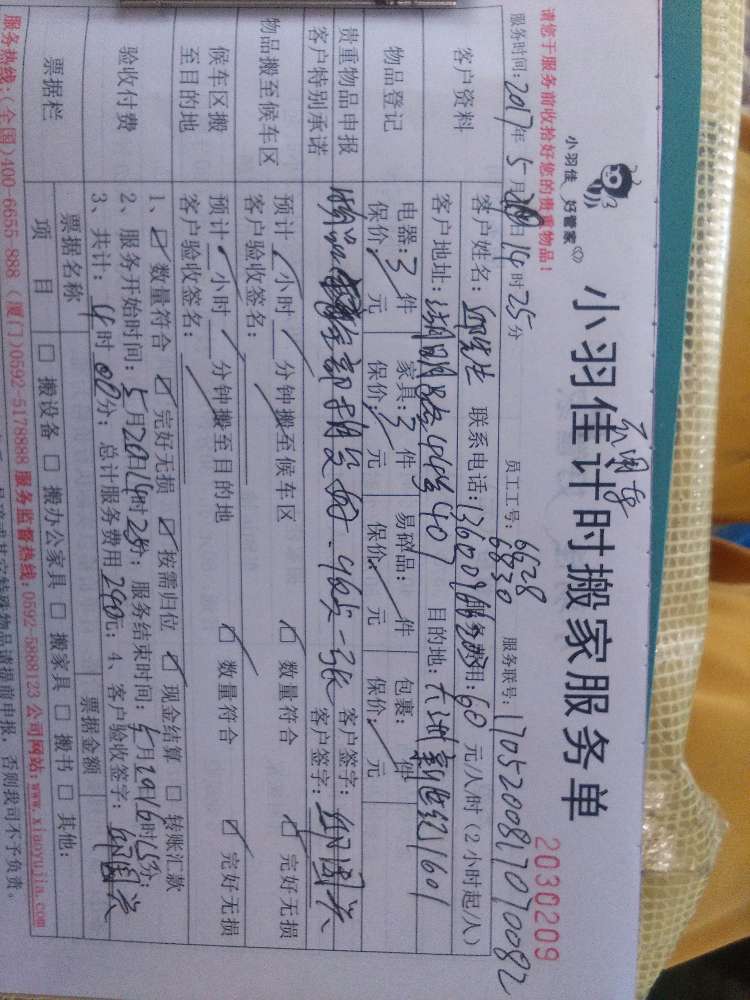 小羽佳计时搬家服务单
小羽佳 好管家
2030209
请您于服务前收拾好您的贵重物品!
员工工号: 6628
6830
服务联号: 170520081707 0082
服务时间: 2017年5月20日14时25分
客户资料
客户姓名: 邱先生 联系电话: 服务费用: 60元/小时(2小时起/人)
客户地址: 湖明路 目的地: 新世纪1601
物品登记
电器: 3件 家具: 3件 易碎品: 件 包裹: 件
保价: 元 保价: 元 保价: 元 保价: 元
贵重物品申报
客户特别承诺
客户签字: 邱国兴
物品搬至候车区
预计 小时 分钟搬至候车区 数量符合 完好无损
客户验收签名:
候车区搬
至目的地
预计 小时 分钟搬至目的地 数量符合 完好无损
客户验收签名:
验收付费
1、数量符合 完好无损 按需归位 现金结算 转账汇款
2、服务开始时间: 5月20日14时25分; 服务结束时间: 5月20日16时25分;
3、共计: 4时00分; 总计服务费用240元; 4、客户验收签字: 邱国兴
票据栏
票据名称 票据金额
项目 搬设备 搬办公家具 搬家具 搬书 其他:
服务热线:(全国)400-6655 888 (厦门)0592-5178888 服务监督热线:0592-5888123 公司网站:www.xiaoyujia.com
特殊物品请提前申报,否则我司不予负责。